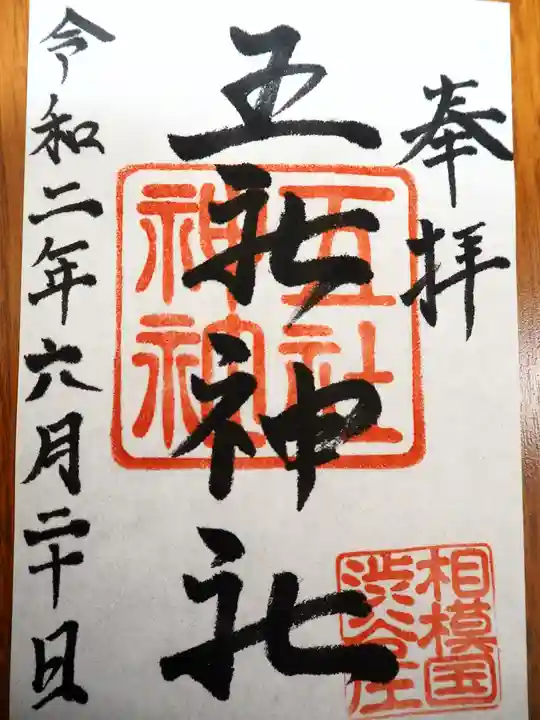 奉拝
五社神社
令和二年六月二十日
五社
神社
相模国
渋谷庄